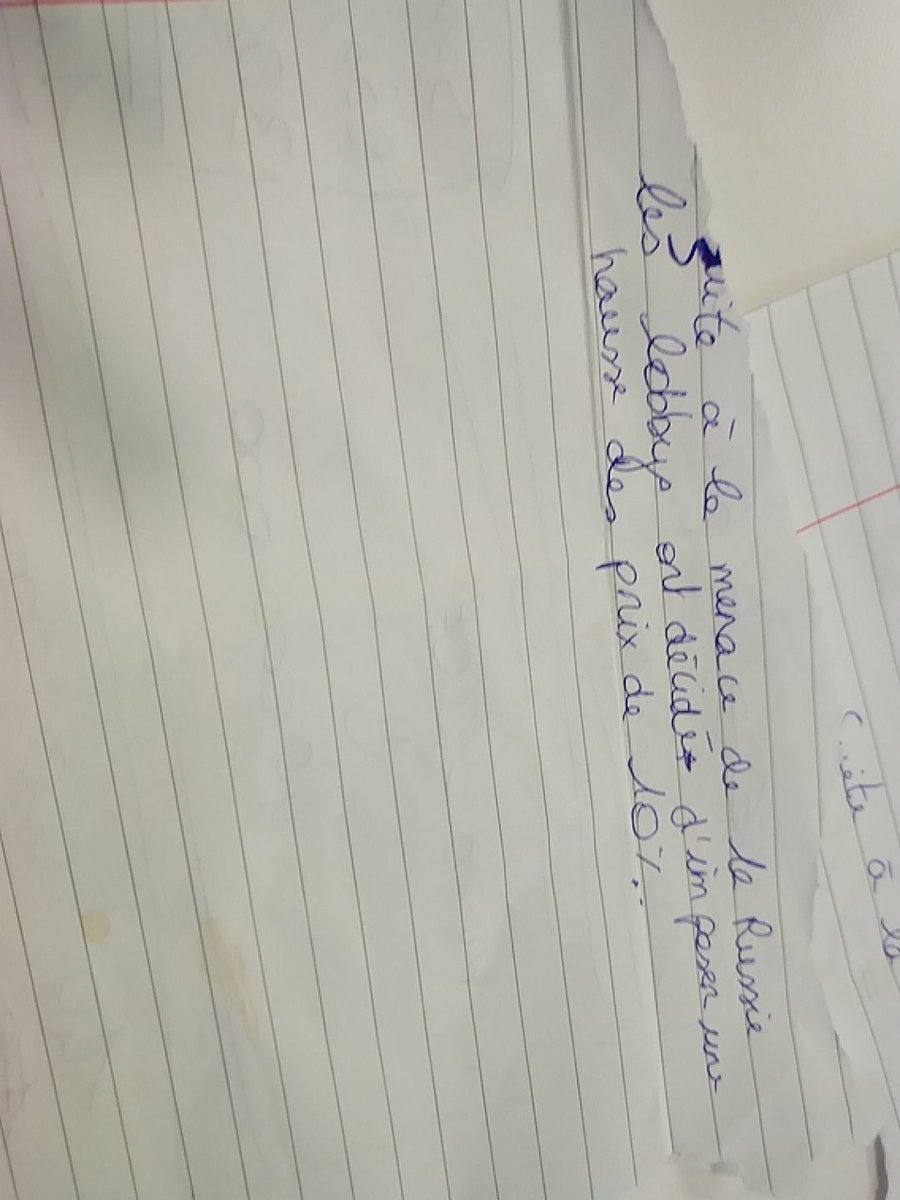 Suite à la menace de la Russie
les lobbys ont décidé d'imposer une
hausse des prix de 10%.
à la